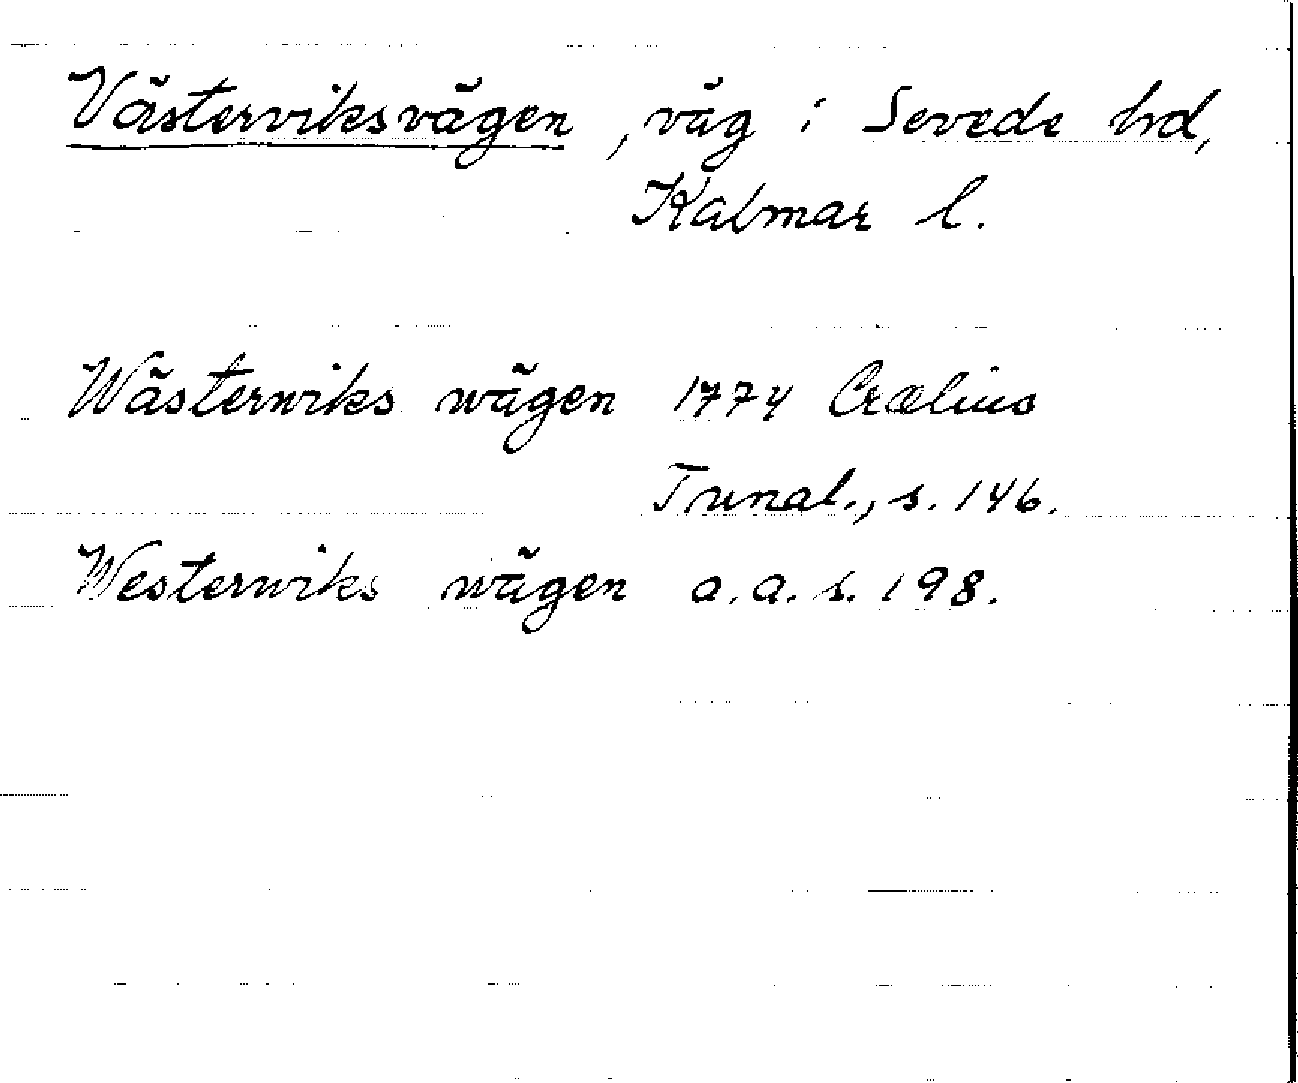 Västerviksvägen, väg i Sevede hd,
Kalmar l.
Wästerwiks wägen 1774 Crælius
Tunal., s. 146.
Westerwiks wägen a.a. s. 198.